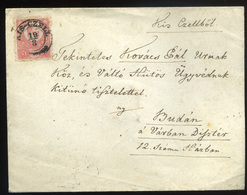 Kis Czellből
Tekintetes Kovács Pál Urnak
Köz, és Váltó Hütös Ügyvédnek
kitünő tisztelettel
Budán
a Várban Disztér
12 szám 1